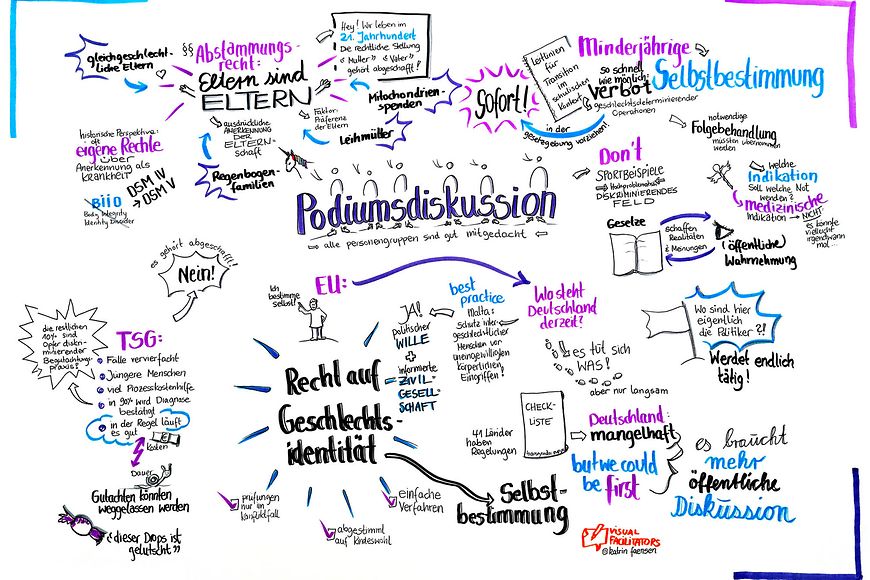 gleichgeschlecht-
liche Eltern
§§ Abstammungs-
recht:
Eltern sind
ELTERN
Hey! Wir leben im
21. Jahrhundert
Die rechtliche Stellung
"Mutter" "Vater"
gehört abgeschafft!
Mitochondrien-
spenden
Leihmütter
Faktor:
Präferenz
der Eltern
ausdrückliche
ANERKENNUNG
DER
ELTERN-
schaft
Regenbogen-
familien
historische Perspektive:
oft
eigene Rechte
über
Anerkennung als
KRANKHEIT
DSM IV
→ DSM V
BIID
Body Integrity
Identity Disorder
Sofort!
Leitlinien
für
Transition
im
schulischen
Kontext
Minderjährige
Selbstbestimmung
so schnell
wie möglich:
Verbot
geschlechtsdeterminierender
Operationen
in der
Gesetzgebung vorziehen!
notwendige
Folgebehandlung
müssten übernommen
werden
welche
Indikation
Soll welche Not
wenden?
medizinische
Indikation → NICHT
es könnte
vielleicht
irgendwann
mal...
Don't
SPORTBEISPIELE
DISKRIMINIERENDES
FELD
Gesetze
schaffen
Realitäten
& Meinungen
(öffentliche)
Wahrnehmung
Podiumsdiskussion
→ alle personengruppen sind gut mitgedacht ←
es gehört abgeschafft!!!
Nein!
die restlichen
10% sind
Opfer diskri-
minierender
Begutachtungs-
praxis?
TSG:
Fälle vervierfacht
Jüngere Menschen
viel Prozesskostenhilfe
in 90% wird Diagnose
bestätigt
in der Regel läuft
es gut
Kosten
Dauer
Gutachten könnten
weggelassen werden
"dieser Drops ist
gelutscht"
Ich
bestimme
selbst!
EU:
JA!
politischer
WILLE
+
informierte
ZIVIL-
GESELL-
SCHAFT
best
practice
Malta:
Schutz inter-
geschlechtlicher
Menschen vor
uneingewilligten
körperlichen
Eingriffen!
Wo steht
Deutschland
derzeit?
es tüt sich
WAS!
aber nur langsam
Wo sind hier
eigentlich
die Politiker ?!!
Werdet endlich
tätig!
Recht auf
Geschlechts-
identität
prüfungen
nur im
Konfliktfall
abgestimmt
auf Kindeswohl
einfache
Verfahren
Selbst-
bestimmung
41 Länder
haben
Regelungen
CHECK-
LISTE
Deutschland:
mangelhaft
but we could
be first
es braucht
mehr
öffentliche
Diskussion
VISUAL
FACILITATORS
@katrin faensen